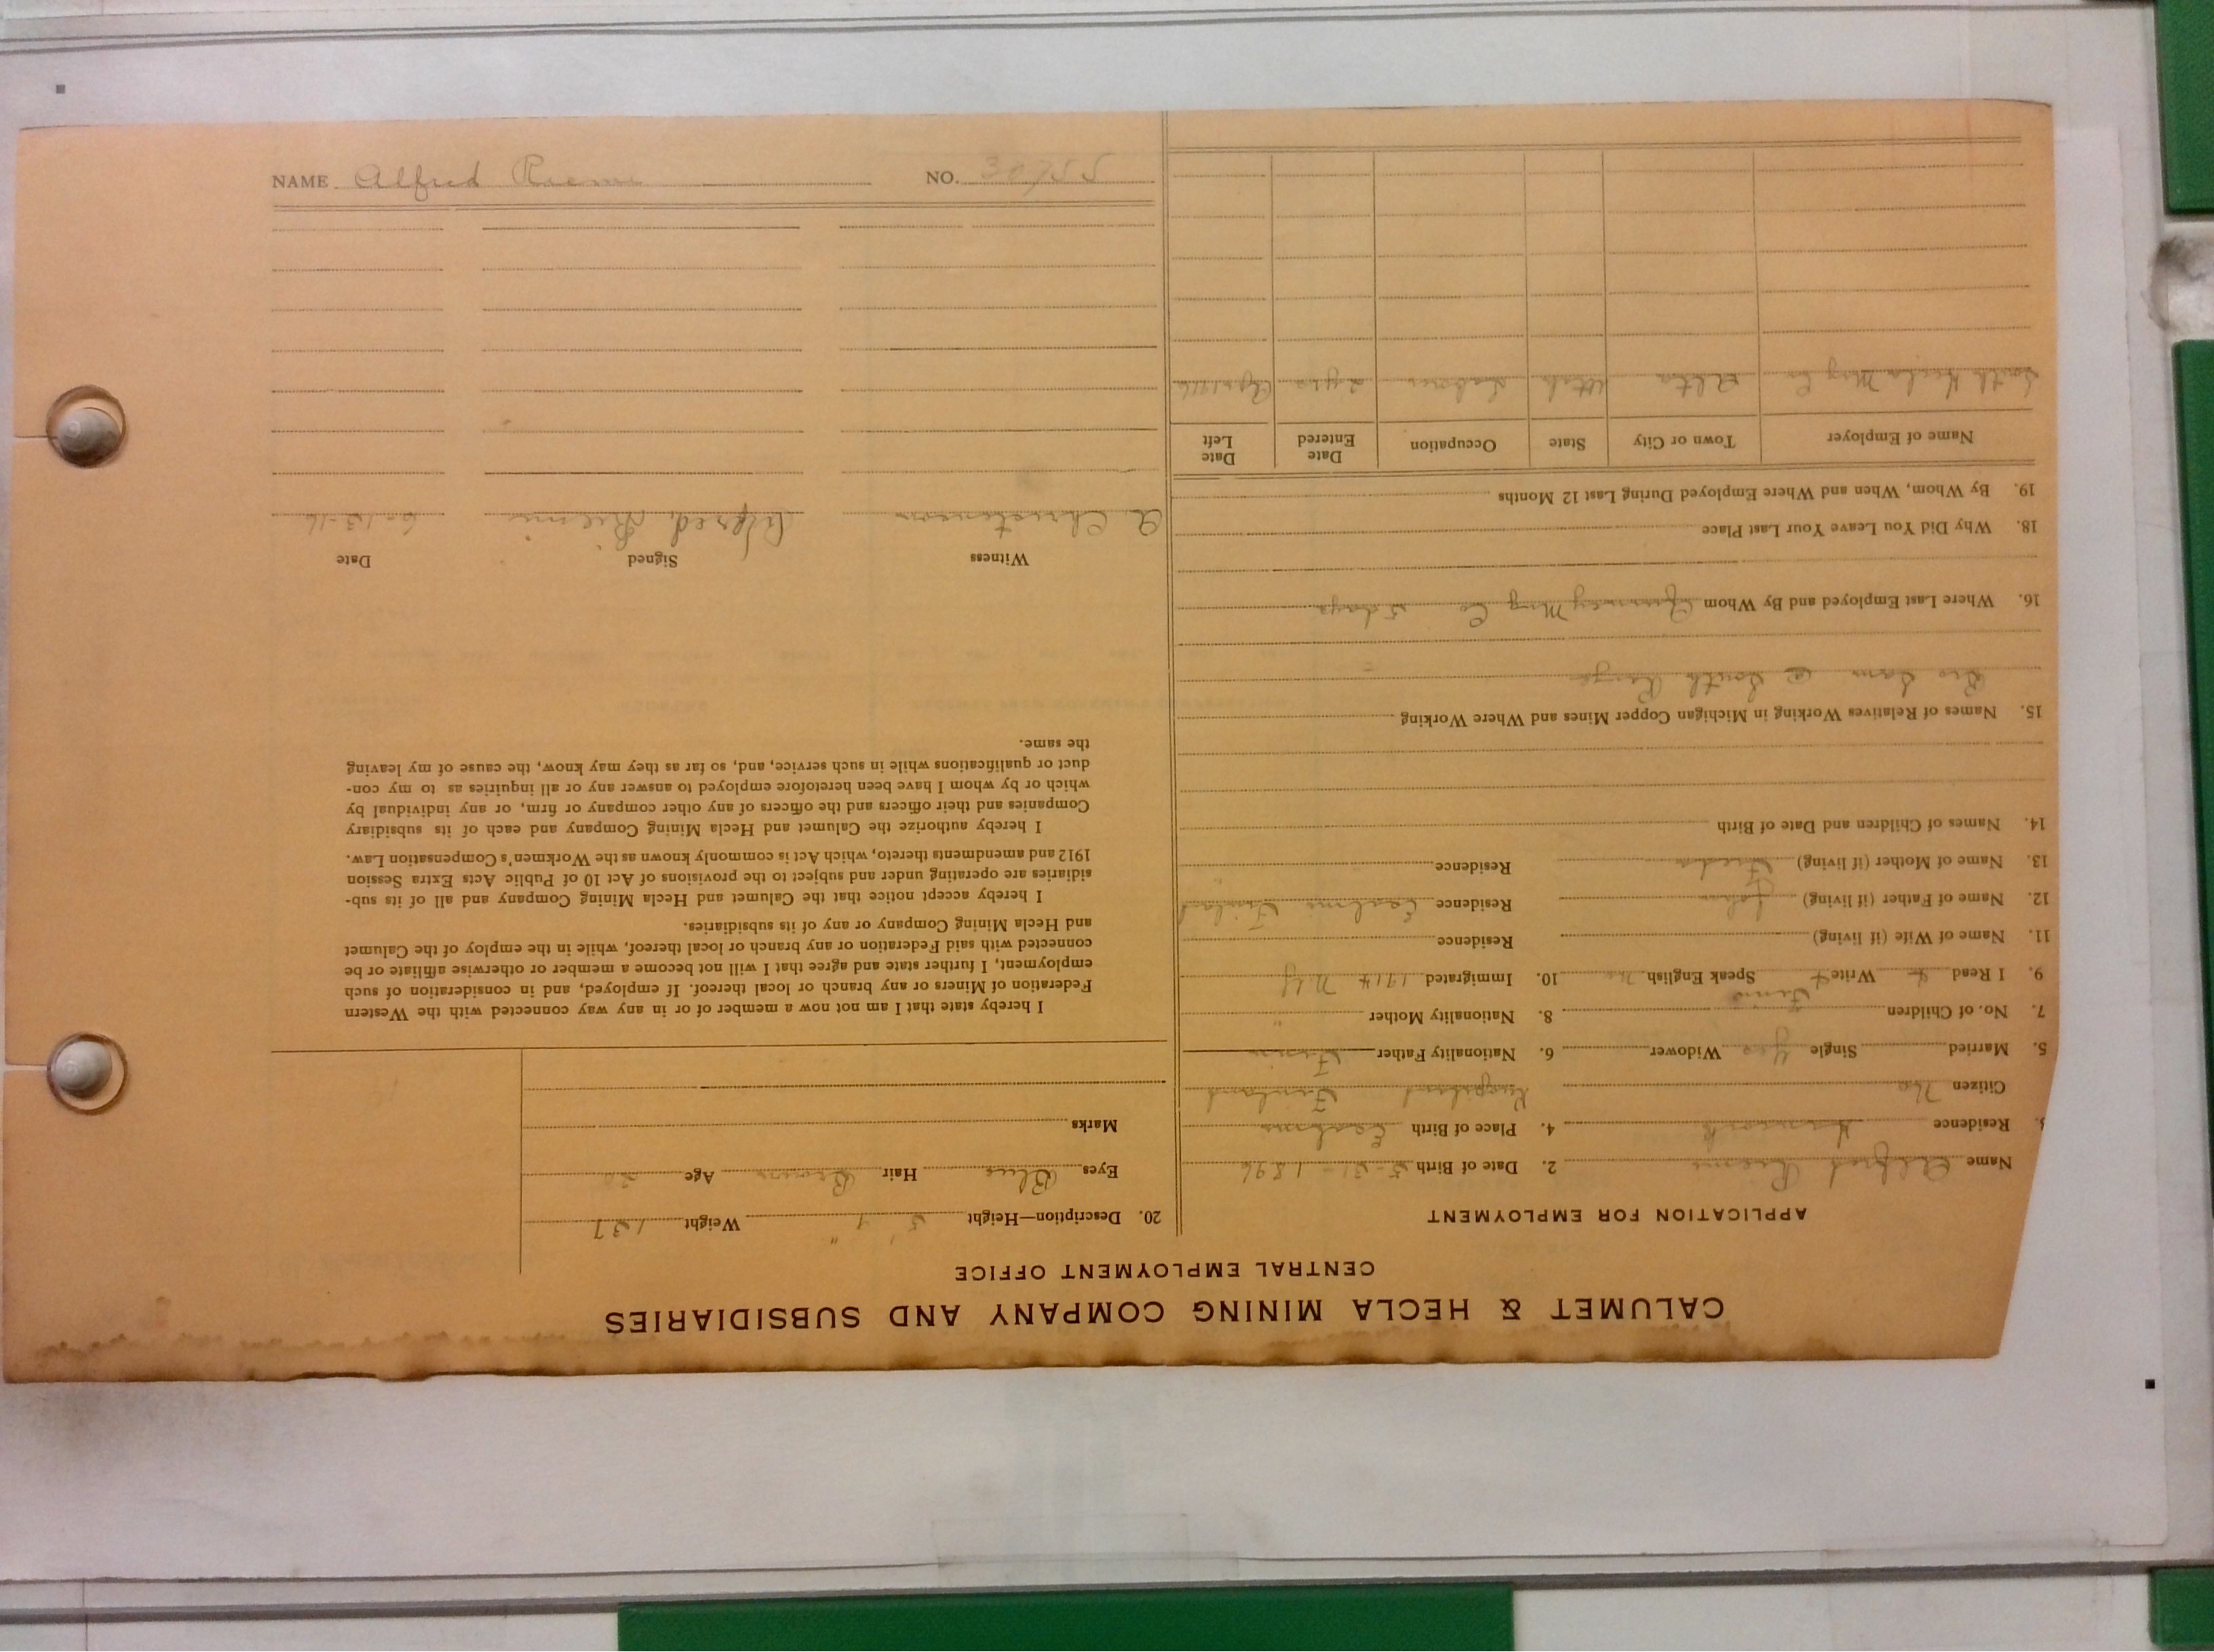 CALUMET & HECLA MINING COMPANY AND SUBSIDIARIES
CENTRAL EMPLOYMENT OFFICE
APPLICATION FOR EMPLOYMENT
Name Alfred 2. Date of Birth 5-31-1896
Residence Hancock 4. Place of Birth
Citizen No Finland
5. Married Single Yes Widower 6. Nationality Father Finn
7. No. of Children 8. Nationality Mother "
Finn
9. I Read Write Speak English No 10. Immigrated 1914 N.Y
11. Name of Wife (if living) Residence
12. Name of Father (if living) John Residence Finland
13. Name of Mother (if living) Residence "
14. Names of Children and Date of Birth
15. Names of Relatives Working in Michigan Copper Mines and Where Working
Bro Sam @ South Range
16. Where Last Employed and By Whom Quincy Mng Co 5 days
18. Why Did You Leave Your Last Place
19. By Whom, When and Where Employed During Last 12 Months
Name of Employer Town or City State Occupation Date Entered Date Left
South Hecla Mng Co Alta Utah Labour 2 yrs
20. Description—Height 5' Weight 137
Eyes Blue Hair Brown Age 20
Marks
I hereby state that I am not now a member of or in any way connected with the Western
Federation of Miners or any branch or local thereof. If employed, and in consideration of such
employment, I further state and agree that I will not become a member or otherwise affiliate or be
connected with said Federation or any branch or local thereof, while in the employ of the Calumet
and Hecla Mining Company or any of its subsidiaries.
I hereby accept notice that the Calumet and Hecla Mining Company and all of its sub-
sidiaries are operating under and subject to the provisions of Act 10 of Public Acts Extra Session
1912 and amendments thereto, which Act is commonly known as the Workmen's Compensation Law.
I hereby authorize the Calumet and Hecla Mining Company and each of its subsidiary
Companies and their officers and the officers of any other company or firm, or any individual by
which or by whom I have been heretofore employed to answer any or all inquiries as to my con-
duct or qualifications while in such service, and, so far as they may know, the cause of my leaving
the same.
Witness Signed Date
A. Christenson Alfred, 6-13-16
NAME Alfred NO. 30755